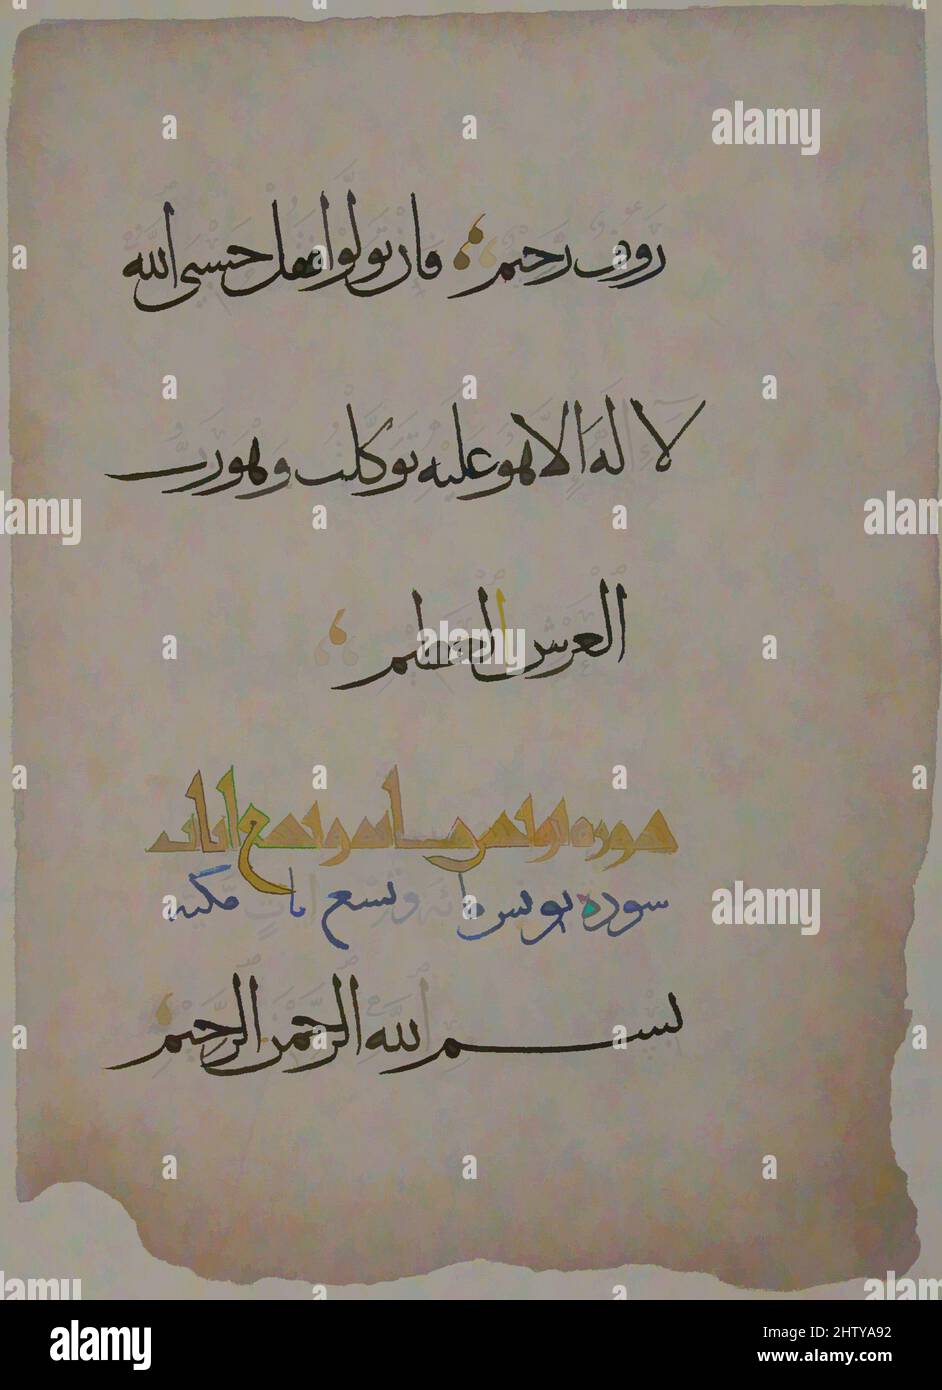 روف رحيم فان تولوا فقل حسبى الله
لا اله الا هو عليه توكلت وهو رب
العرش العظيم
سورة يونس مائة وتسع ايات
سورة يونس مائة وتسع ايات مكية
بسم الله الرحمن الرحيم
alamy
Image ID: 2HTYA92
www.alamy.com